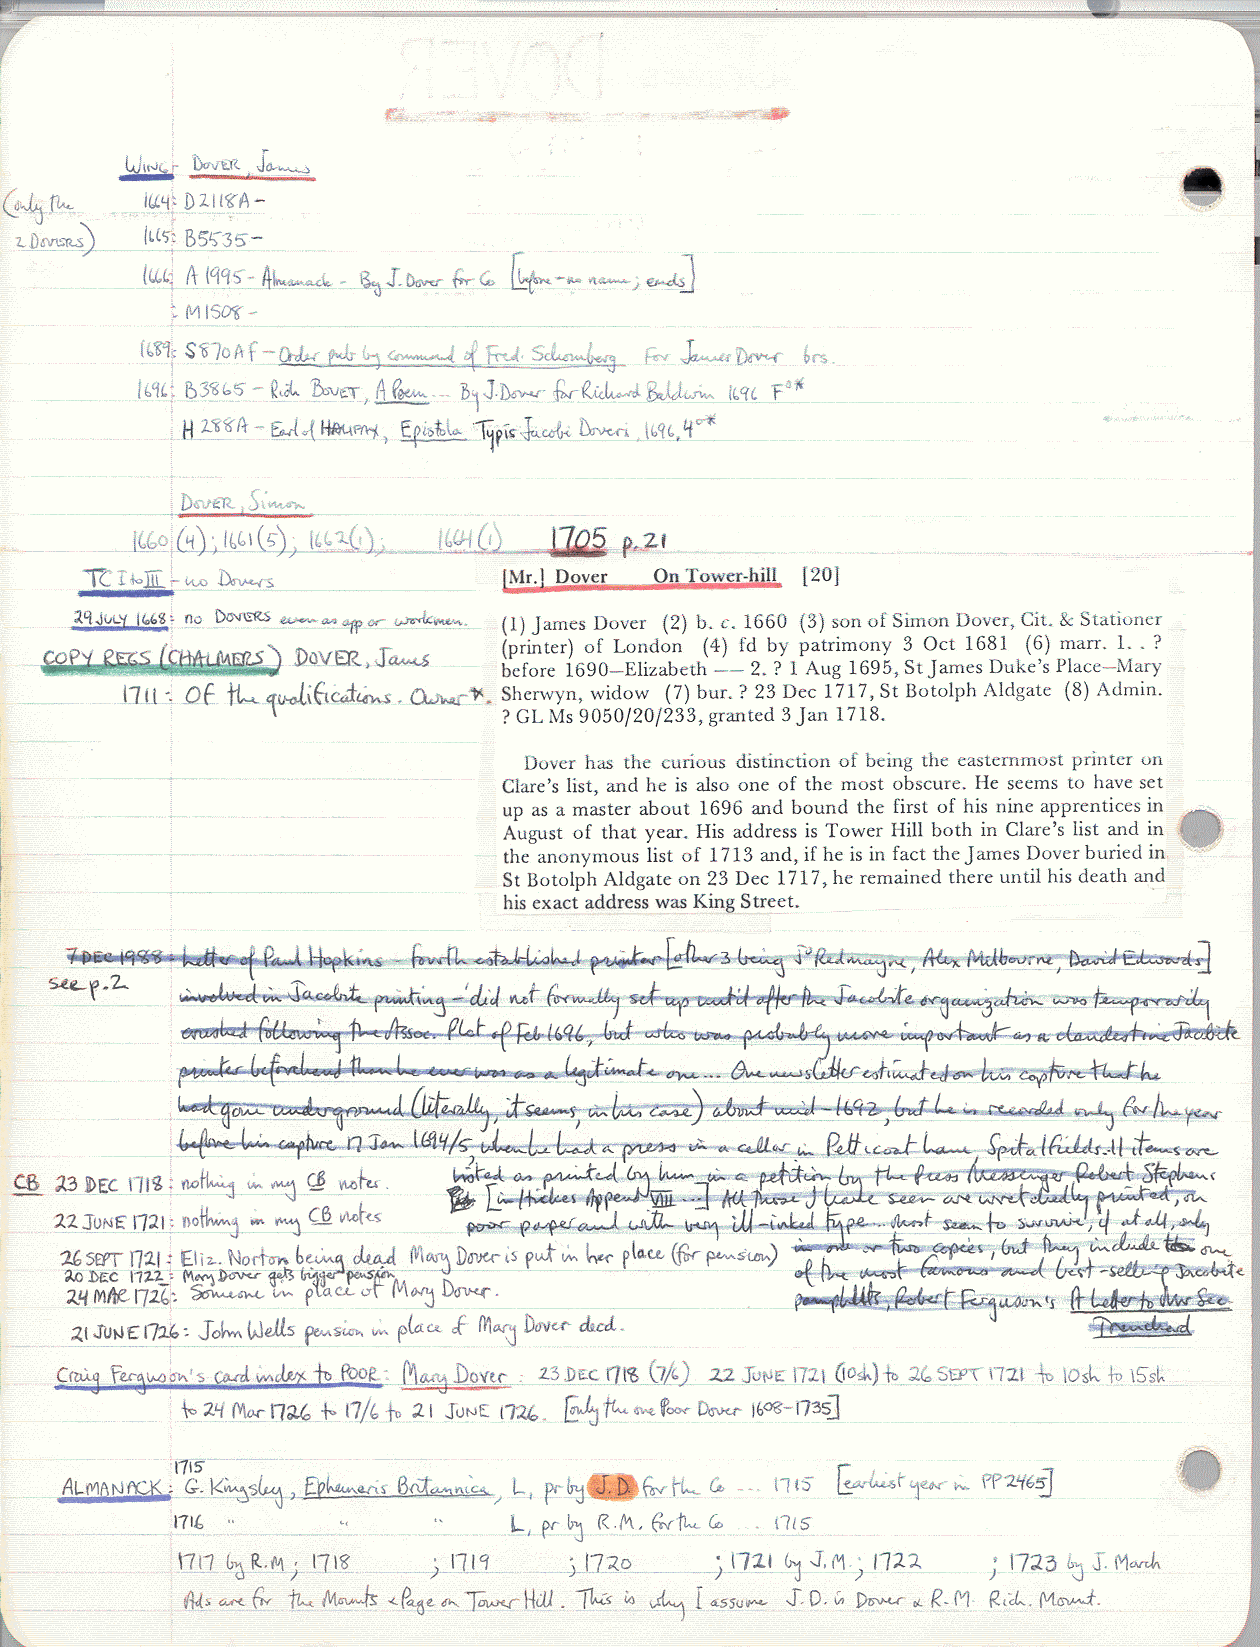 WING - DOVER, James
(only the 2 DOVERS)
1664: D2118A -
1665: B5535 -
1666: A1995 - Almanack - By J. Dover for Co [before - no name; ends]
: M1508 -
1689: S870Af - Order pub by command of Fred. Schomberg For James Dover brs.
1696: B3865 - Rich BOVET, A Poem ... By J. Dover for Richard Baldwin 1696 Fo*
H288A - Earl of HALIFAX, Epistola Typis Jacobi Doveri, 1696, 4o*
DOVER, Simon
1660 (4); 1661 (5); 1662 (1); 1664 (1)
TC I to III - no Dovers
29 JULY 1668: no DOVERS even as app or workmen.
COPY REGS (CHALMERS) DOVER, James
1711: Of the qualifications. Owner *.
1705 p.21
[Mr.] Dover On Tower-hill [20]
(1) James Dover (2) b. c. 1660 (3) son of Simon Dover, Cit. & Stationer
(printer) of London (4) fd by patrimony 3 Oct 1681 (6) marr. 1. . ?
before 1690—Elizabeth —— 2. ? 1 Aug 1695, St James Duke's Place—Mary
Sherwyn, widow (7) bur. ? 23 Dec 1717, St Botolph Aldgate (8) Admin.
? GL Ms 9050/20/233, granted 3 Jan 1718.
Dover has the curious distinction of being the easternmost printer on
Clare's list, and he is also one of the most obscure. He seems to have set
up as a master about 1696 and bound the first of his nine apprentices in
August of that year. His address is Tower Hill both in Clare's list and in
the anonymous list of 1713 and, if he is in fact the James Dover buried in
St Botolph Aldgate on 23 Dec 1717, he remained there until his death and
his exact address was King Street.
7 DEC 1988: Letter of Paul Hopkins - fourth established printer [other 3 being Jo Redmayne, Alex Milbourne, David Edwards]
see p.2
involved in Jacobite printing - 'did not formally set up until after the Jacobite organization was temporarily
crushed following the Assoc. Plot of Feb 1696, but who was probably more important as a clandestine Jacobite
printer beforehand than he ever was as a legitimate one ... One newsletter estimated on his capture that he
had gone underground (literally, it seems, in his case) about mid-1692, but he is recorded only for the year
before his capture 17 Jan 1694/5, when he had a press in a cellar in Petticoat Lane, Spitalfields. 11 items are
listed as printed by him in a petition by the Press Messenger Robert Stephens
[in Hickes Append VIII ...] All those I have seen are wretchedly printed, on
poor paper and with very ill-inked type ... Most seem to survive, if at all, only
in one or two copies, but they include one
of the most famous and best-selling Jacobite
pamphlets, Robert Ferguson's A Letter to Mr Sec
Trenchard
CB 23 DEC 1718: nothing in my CB notes.
22 JUNE 1721: nothing in my CB notes
26 SEPT 1721: Eliz. Norton being dead Mary Dover is put in her place (for pension)
20 DEC 1722: Mary Dover gets bigger pension
24 MAR 1726: Someone in place of Mary Dover.
21 JUNE 1726: John Wells pension in place of Mary Dover decd.
Craig Ferguson's card index to POOR: Mary Dover: 23 DEC 1718 (7/6) 22 JUNE 1721 (10sh) to 26 SEPT 1721 to 10sh to 15sh
to 24 Mar 1726 to 17/6 to 21 JUNE 1726. [only the one Poor Dover 1608-1735]
1715
ALMANACK: G. Kingsley, Ephemeris Britannica, L, pr by J.D. for the Co ... 1715 [earliest year in PP 2465]
1716 " " " L, pr by R.M. for the Co ... 1715
1717 by R.M; 1718 ; 1719 ; 1720 ; 1721 by J.M.; 1722 ; 1723 by J. March
Ads are for the Mounts & Page on Tower Hill. This is why I assume J.D. is Dover & R.M. Rich. Mount.